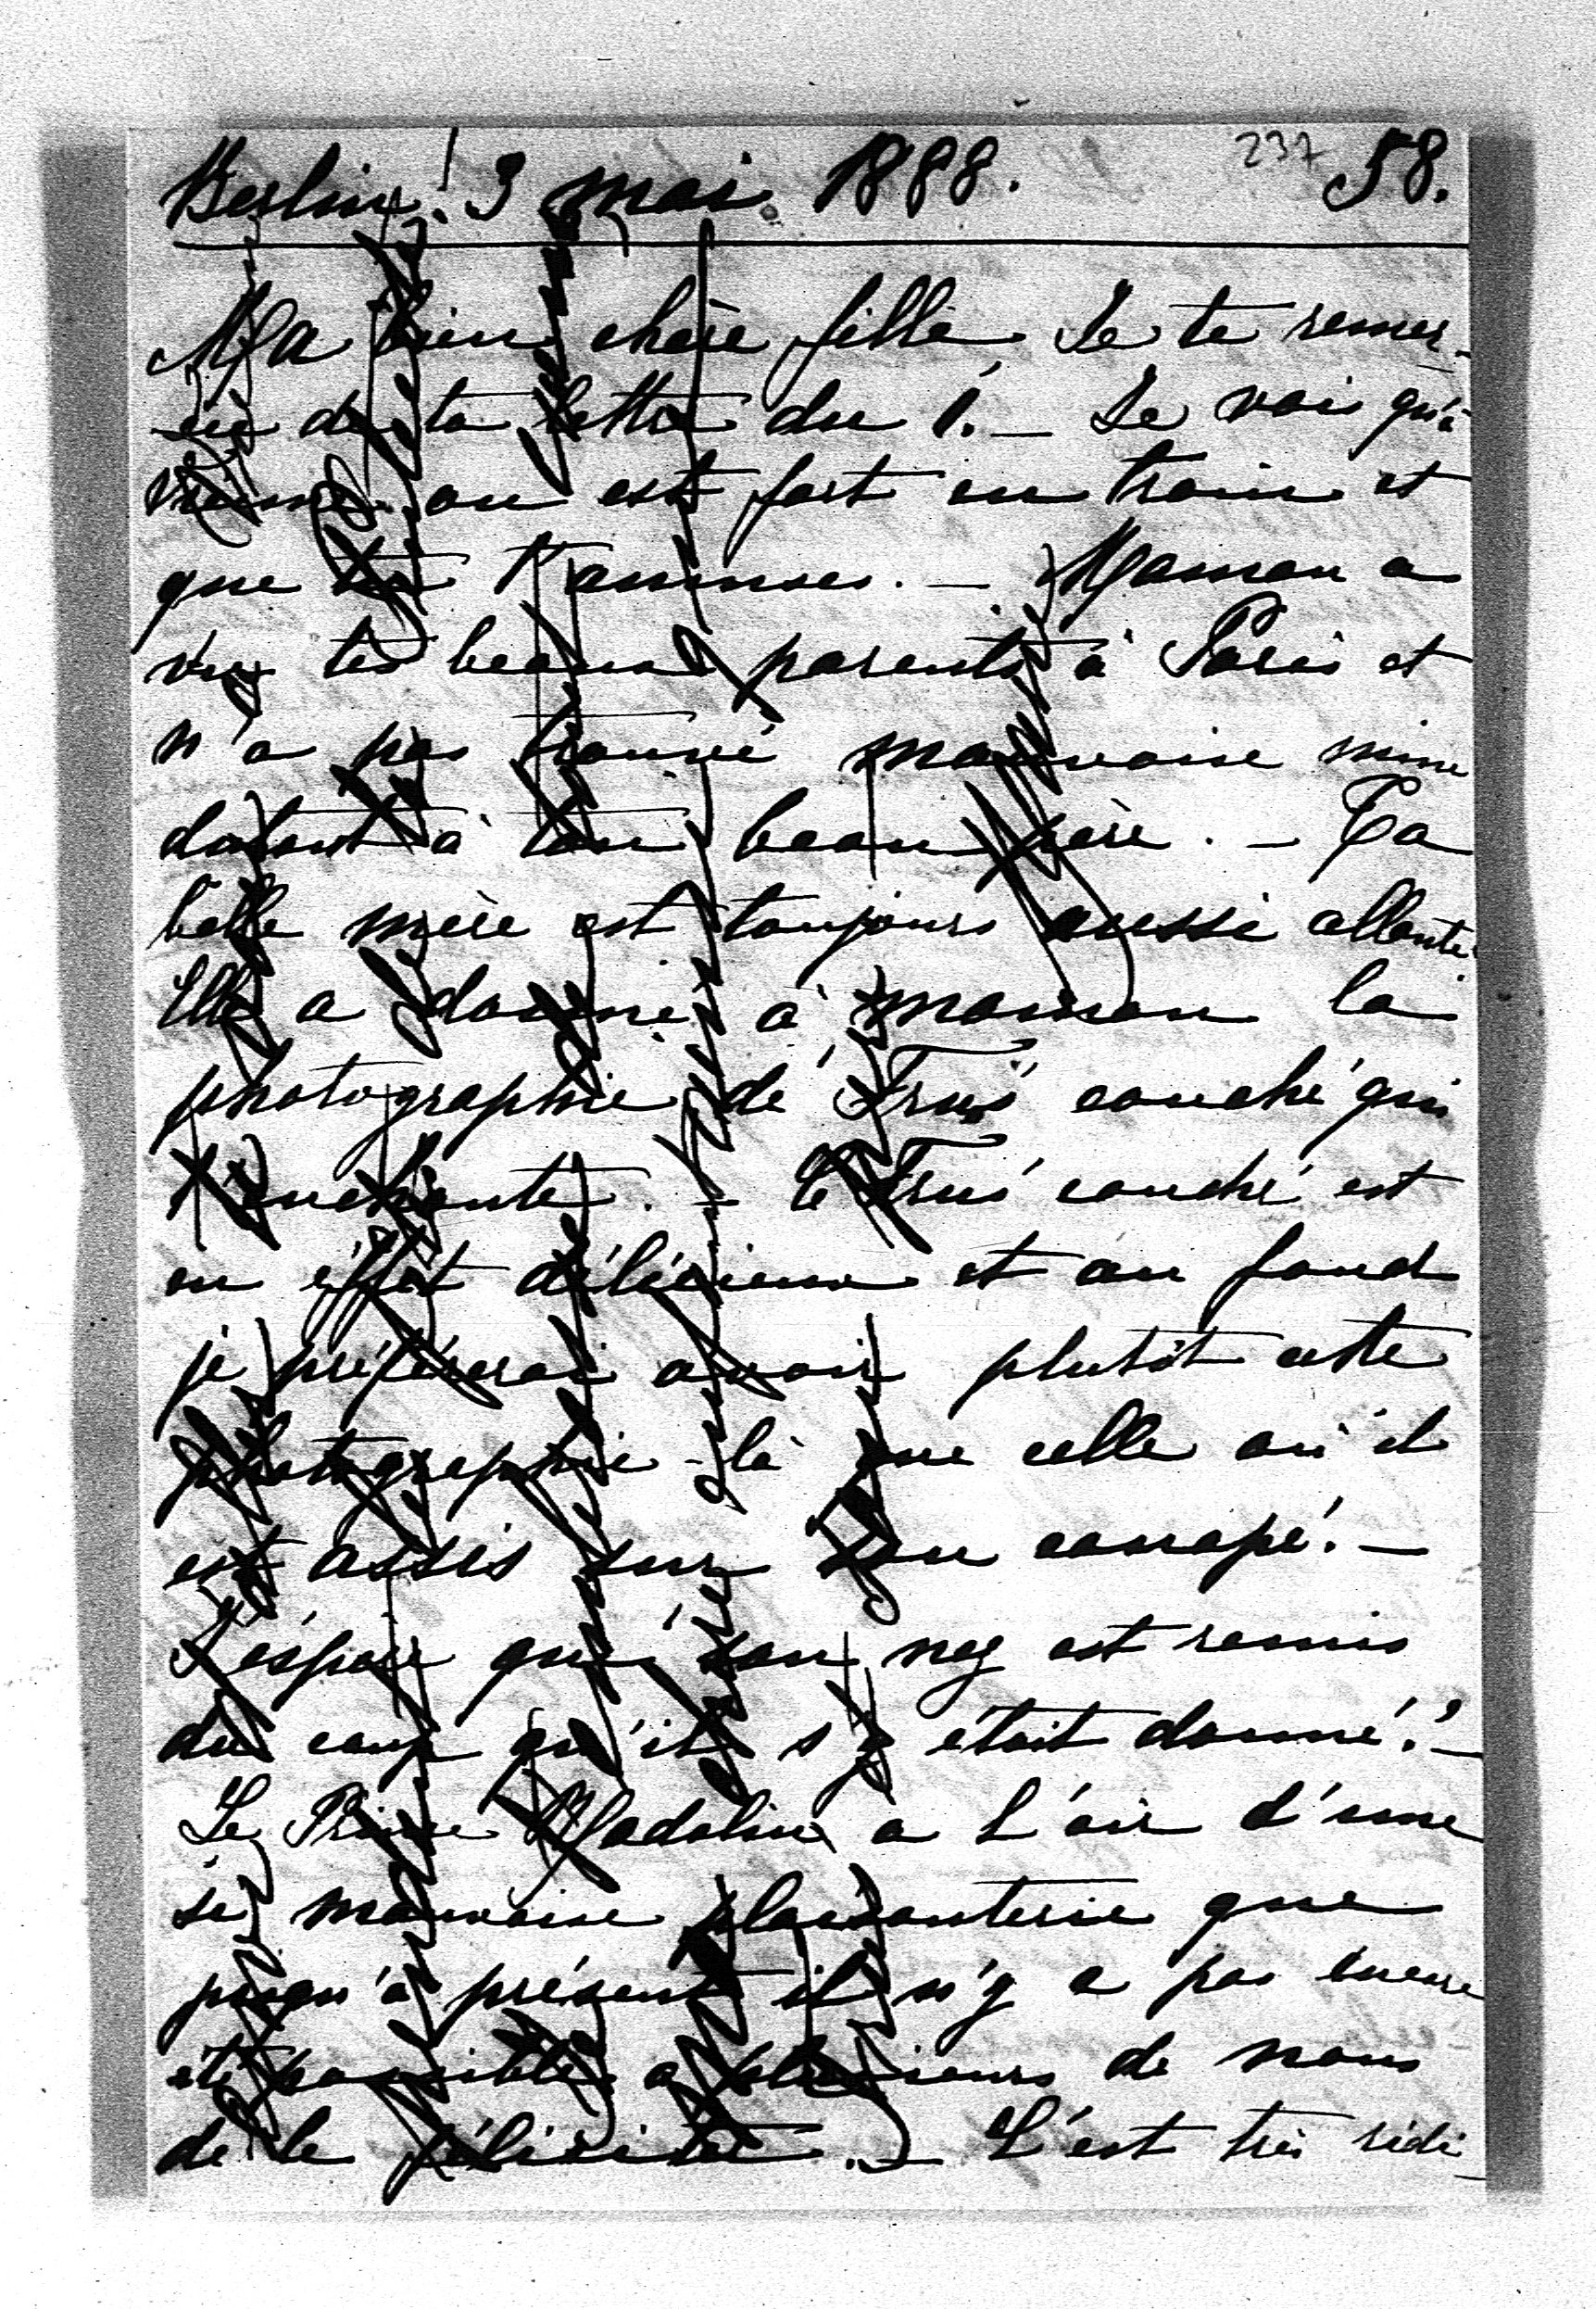 Berlin! 3 mai 1888. 237 58.
Ma bien chère fille. Je te remer-
cie de ta lettre du 1. — Je vois qu'à
Vienne on est fort en train et
que tu t'amuses. — Maman a
vu tes beaux parents à Paris et
n'a pas trouvé mauvaise mine
du tout à ton beau père. — Ta
belle mère est toujours aussi allante.
Elle a donné à maman la
photographie de couché qui
l'enchante. — Le couché est
en effet délicieux et au fond
je préférerai avoir plutôt cette
photographie-là que celle où il
est assis sur canapé. —
J'espère que son nez est remis
du coup qu'il s'y était donné! —
Le Prince Radolin a l'air d'une
si mauvaise plaisanterie que
jusqu'à présent il n'y a pas encore
été possible a plusieurs de nous
de le féliciter. — C'est très ridi-